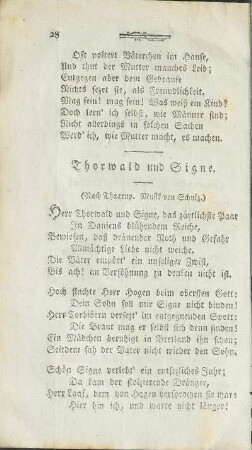 28
Oft poltert Väterchen im Hause,
Und thut der Mutter manches Leid;
Entgegen aber dem Gebrause
Nichts sezet sie, als Freundlichkeit.
Mag sein! mag sein! Was weiß ein Kind?
Doch lern' ich selbst, wie Männer sind;
Nicht allerdings in solchen Sachen
Werd' ich, wie Mutter macht, es machen.
Thorwald und Signe.
(Nach Thaarup. Musik von Schulz.)
Herr Thorwald und Signe, das zärtlichste Paar
In Daniens blühendem Reiche,
Bewiesen, daß dränender Noth und Gefahr
Allmächtige Liebe nicht weiche.
Die Väter empört' ein unseliger Zwist,
Bis ach! an Versöhnung zu denken nicht ist.
Hoch fluchte Herr Hogen beim obersten Gott:
Dein Sohn soll mir Signe nicht finden!
Herr Torbiörn versezt' im entgegnenden Spott:
Die Braut mag er selbst sich denn finden!
Ein Mädchen beruhigt in Bretland ihn schon;
Seitdem sah der Vater nicht wieder den Sohn.
Schön Signe verlebt' ein entsezliches Jahr;
Da kam der stolzierende Dränger,
Herr Laaf, dem von Hogen versprochen sie war:
Hier bin ich, und warte nicht länger!